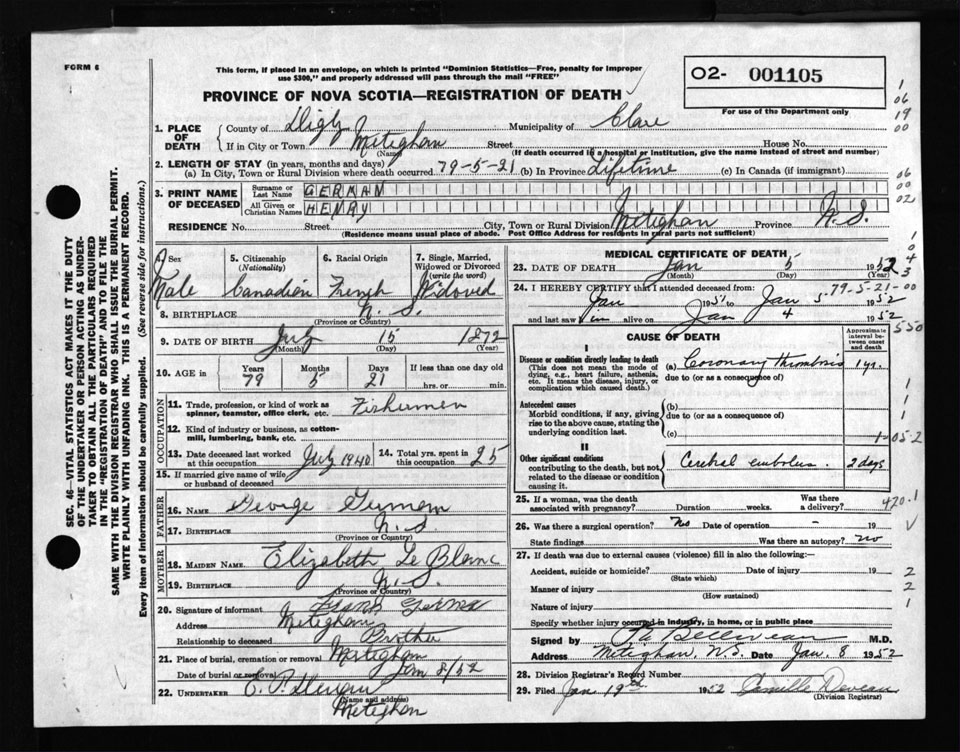 FORM 6
This form, if placed in an envelope, on which is printed "Dominion Statistics—Free, penalty for improper
use $300," and properly addressed will pass through the mail "FREE"
PROVINCE OF NOVA SCOTIA—REGISTRATION OF DEATH
02- 001105
For use of the Department only
1. PLACE OF DEATH
County of Digby Municipality of Clare
If in City or Town Meteghan Street House No.
(Name) (If death occurred in a hospital or institution, give the name instead of street and number)
2. LENGTH OF STAY (in years, months and days)
(a) In City, Town or Rural Division where death occurred 79-5-21 (b) In Province Lifetime (c) In Canada (if immigrant)
3. PRINT NAME OF DECEASED
Surname or Last Name GERMAN
All Given or Christian Names HENRY
RESIDENCE No. Street City, Town or Rural Division Meteghan Province N.S.
(Residence means usual place of abode. Post Office Address for residents in rural parts not sufficient)
4. Sex Male
5. Citizenship (Nationality) Canadian
6. Racial Origin French
7. Single, Married, Widowed or Divorced (write the word) Widoved
8. BIRTHPLACE N.S.
(Province or Country)
9. DATE OF BIRTH July 15 1872
(Month) (Day) (Year)
10. AGE in Years 79 Months 5 Days 21 If less than one day old
hrs. or min.
OCCUPATION
11. Trade, profession, or kind of work as
spinner, teamster, office clerk, etc. Fishermen
12. Kind of industry or business, as cotton-
mill, lumbering, bank, etc.
13. Date deceased last worked
at this occupation July 1940
14. Total yrs. spent in
this occupation 25
15. If married give name of wife
or husband of deceased
FATHER
16. NAME George German
17. BIRTHPLACE N.S.
(Province or Country)
MOTHER
18. MAIDEN NAME Elizabeth Le Blanc
19. BIRTHPLACE N.S.
(Province or Country)
20. Signature of informant Frank German
Address Meteghan
Relationship to deceased Brother
21. Place of burial, cremation or removal Meteghan
Date of burial or removal Jan 8/52
22. UNDERTAKER
(Name and address)
Meteghan
MEDICAL CERTIFICATE OF DEATH
23. DATE OF DEATH Jan 5 1952
(Month) (Day) (Year)
79-5-21-00
24. I HEREBY CERTIFY that I attended deceased from:
Jan 1951 to Jan 5 1952
and last saw him alive on Jan 4 1952
CAUSE OF DEATH
Approximate interval between onset and death
I
Disease or condition directly leading to death
(This does not mean the mode of
dying, e.g., heart failure, asthenia,
etc. It means the disease, injury, or
complication which caused death.)
(a) Coronary thrombosis 1 yr.
due to (or as a consequence of)
Antecedent causes
Morbid conditions, if any, giving
rise to the above cause, stating the
underlying condition last.
(b)
due to (or as a consequence of)
(c)
II
Other significant conditions
contributing to the death, but not
related to the disease or condition
causing it.
Cerebral embolus. 2 days
25. If a woman, was the death
associated with pregnancy? Duration weeks. Was there a delivery?
420.1
26. Was there a surgical operation? No Date of operation - 19
State findings Was there an autopsy? no
27. If death was due to external causes (violence) fill in also the following:—
Accident, suicide or homicide? Date of injury 19
(State which)
Manner of injury
(How sustained)
Nature of injury
Specify whether injury occurred in industry, in home, or in public place
Signed by Belliveau M.D.
Address Meteghan, N.S. Date Jan. 8 1952
28. Division Registrar's Record Number
29. Filed Jan. 19th 1952 Camille Deveau
(Division Registrar)
SEC. 46—VITAL STATISTICS ACT MAKES IT THE DUTY
OF THE UNDERTAKER OR PERSON ACTING AS UNDER-
TAKER TO OBTAIN ALL THE PARTICULARS REQUIRED
IN THE "REGISTRATION OF DEATH" AND TO FILE THE
SAME WITH THE DIVISION REGISTRAR WHO SHALL ISSUE THE BURIAL PERMIT.
WRITE PLAINLY WITH UNFADING INK. THIS IS A PERMANENT RECORD.
Every item of information should be carefully supplied. (See reverse side for instructions.)
1
06
19
00
06
00
02
1
0
4
3
550
1
1
1
1-052
V
2
2
1